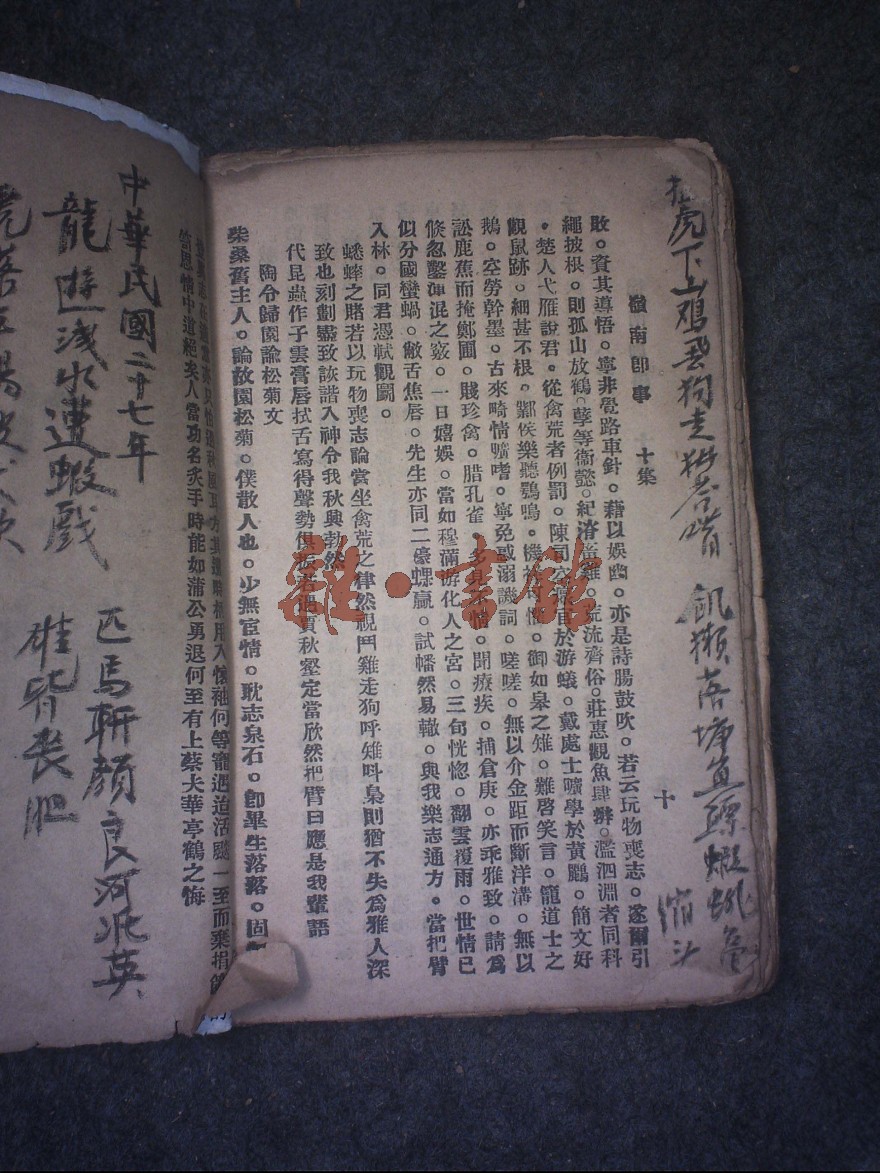 猛虎下山鸡飛狗走
飢獺落塘魚
蝦
嶺南即事 十集 十
敗。資其導悟。寧非覺路車針。藉以娛幽。亦是詩腸鼓吹。若云玩物喪志。遂爾引
繩披根。則孤山放鶴。孽等衞懿。紀渻音雞。荒流齊俗。莊惠觀魚肆辨。濫泗淵者同科
。楚人弋雁說君。從禽荒者例罰。陳司空據官於游蟻。戴處士曠學於黃鸝。簡文好
觀鼠跡。細甚不根。酇侯樂聽鶚鳴。機 御如皋之雉。難啓笑言。籠道士之
鵝。空勞幹墨。古來畸情曠嗜。寧免惑溺譏詞。嗟嗟。無以介金距而斷洋溝。無以
訟鹿蕉而掩鄭圃。賤珍禽。腊孔雀。多見不情。閉療疾。捕倉庚。亦乖雅致。請爲
倐忽鑿渾混之竅。一日嬉娛。當如穆滿游化人之宮。三旬恍惚。翻雲覆雨。世情已
似分國蠻蝸。敝舌焦唇。先生亦同二蠔螺蠃。試幡然易轍。與我樂志通方。當把臂
入林。同君憑軾觀鬭。
蟋蟀之賭若以玩物喪志論當坐禽荒之律然視鬥雞走狗呼雉呌梟則猶不失爲雅人深
致也刻劃盡致詼諧入神令我秋興勃然
代昆蟲作子雲膏唇拭舌寫得聲勢俱 賈秋壑定當欣然把臂曰應是我輩語
陶令歸園論松菊文
柴桑舊主人。論故園松菊。僕散人也。少無宦情。耽志泉石。卽畢生落落。固
雜·書館
用入懷袖何等寵遇迨活颷一至而棄捐篋
笥恩情中道絕矣人當功名炙手時能如蒲公勇退何至有上蔡犬華亭鶴之悔
中華民國二十七年
龍遊浅水遭蝦戲
匹馬斬顏良河北英
雄皆喪胆